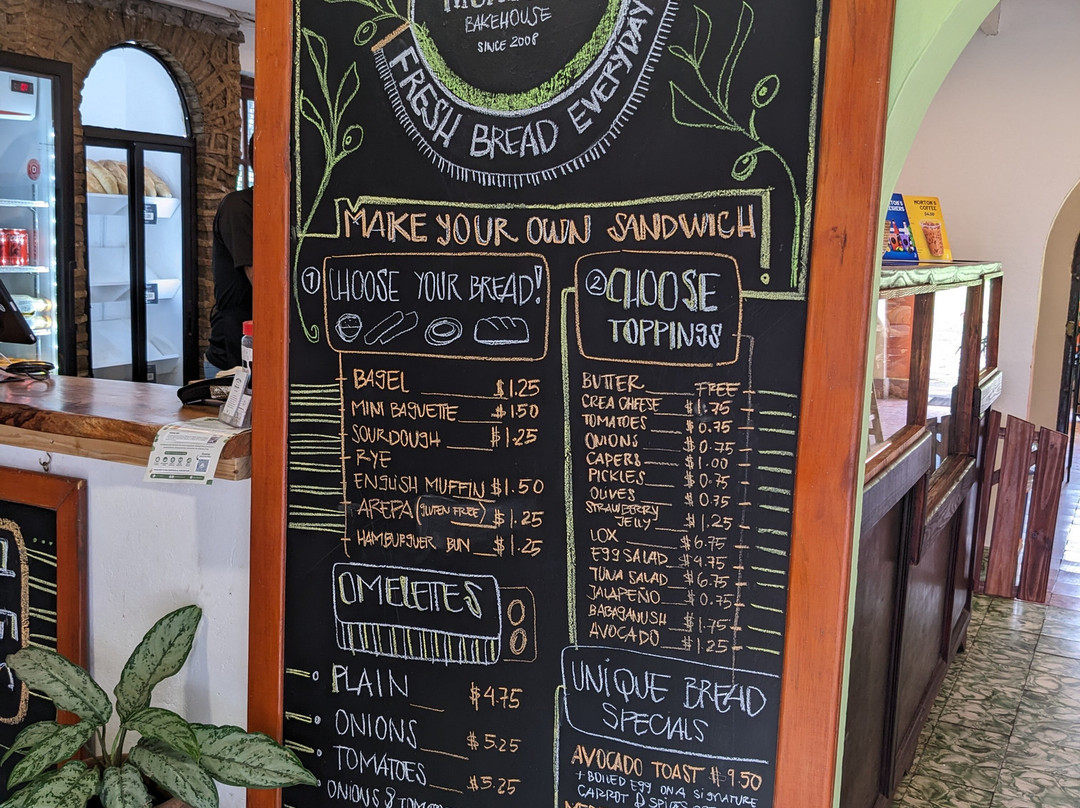 BAKEHOUSE
SINCE 2008
FRESH BREAD EVERYDAY
MAKE YOUR OWN SANDWICH
1 CHOOSE YOUR BREAD!
BAGEL $1.25
MINI BAGUETTE $1.50
SOURDOUGH $1.25
RYE
ENGLISH MUFFIN $1.50
AREPA (GLUTEN FREE) $1.25
HAMBURGUER BUN $1.25
OMELETTES
PLAIN $4.75
ONIONS $5.25
TOMATOES $5.25
ONIONS &
2 CHOOSE
TOPPINGS
BUTTER FREE
CREA CHEESE $1.75
TOMATOES $0.75
ONIONS $0.75
CAPERS $1.00
PICKLES $0.75
OLIVES $0.75
STRAWBERRY
JELLY $1.25
LOX $6.75
EGG SALAD $4.75
TUNA SALAD $6.75
JALAPEÑO $0.75
BABAGANUSH $1.75
AVOCADO $1.25
UNIQUE BREAD
SPECIALS
AVOCADO TOAST $9.50
+ BOILED EGG ON A SIGNATURE
CARROT & SPICES
MORTON'S
COFFEE